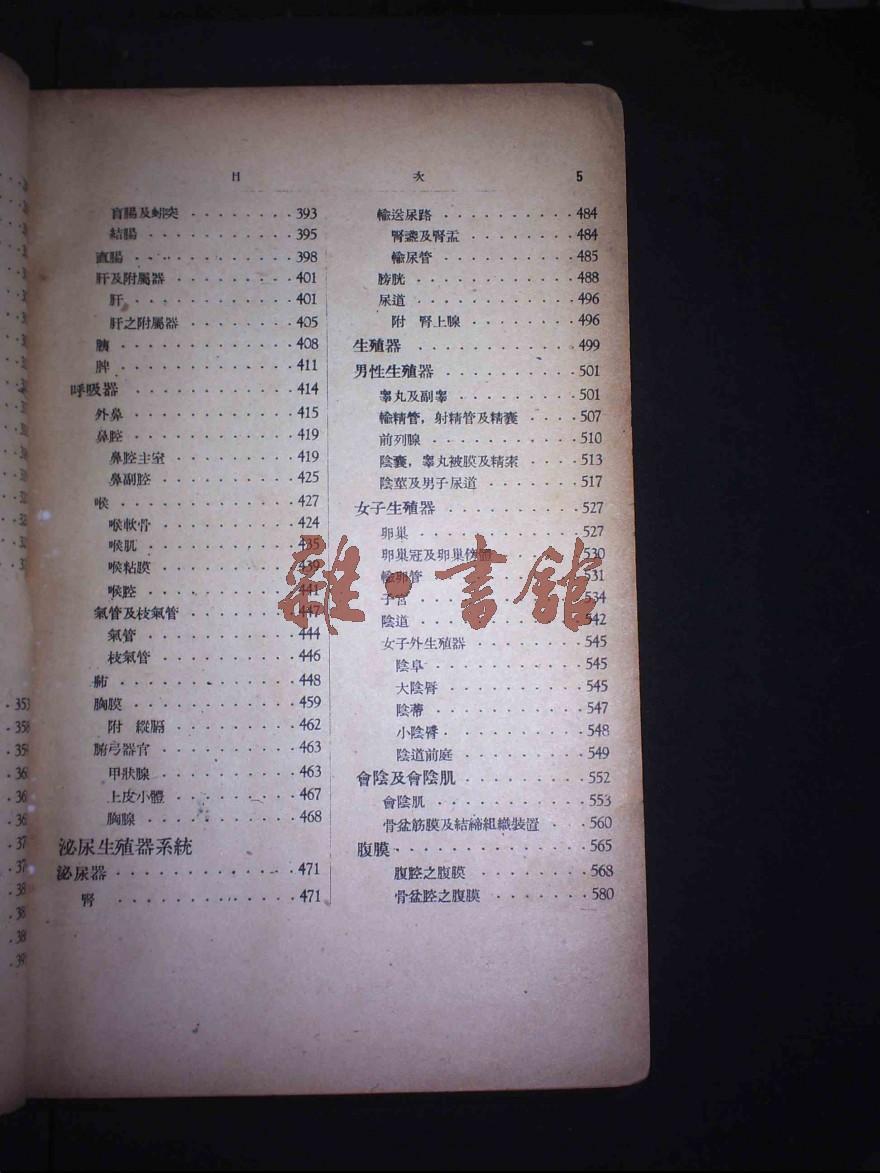 目 次 5
盲腸及蚓突 393
結腸 395
直腸 398
肝及附屬器 401
肝 401
肝之附屬器 405
胰 408
脾 411
呼吸器 414
外鼻 415
鼻腔 419
鼻腔主室 419
鼻副腔 425
喉 427
喉軟骨 424
喉肌 435
喉粘膜 439
喉腔 441
氣管及枝氣管 447
氣管 444
枝氣管 446
肺 448
胸膜 459
附 縱膈 462
腑弓器官 463
甲狀腺 463
上皮小體 467
胸腺 468
泌尿生殖器系統
泌尿器 471
腎 471
輸送尿路 484
腎盞及腎盂 484
輸尿管 485
膀胱 488
尿道 496
附 腎上腺 496
生殖器 499
男性生殖器 501
睾丸及副睾 501
輸精管，射精管及精囊 507
前列腺 510
陰囊，睾丸被膜及精索 513
陰莖及男子尿道 517
女子生殖器 527
卵巢 527
卵巢冠及卵巢傍體 530
輸卵管 531
子宮 534
陰道 542
女子外生殖器 545
陰阜 545
大陰脣 545
陰蒂 547
小陰脣 548
陰道前庭 549
會陰及會陰肌 552
會陰肌 553
骨盆筋膜及結締組織裝置 560
腹膜 565
腹腔之腹膜 568
骨盆腔之腹膜 580
雜·書館
353
358